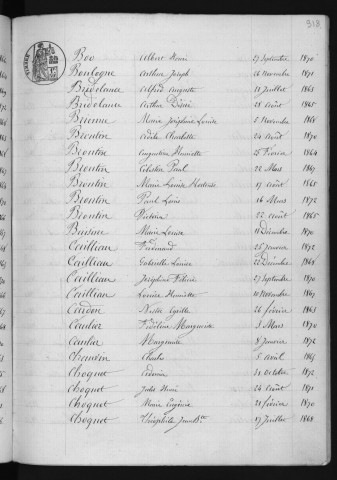 318
Boo Albert Henri 27 Septembre 1870
Boulogne Arthur Joseph 16 Novembre 1871
Bridelance Alfred Auguste 11 Juillet 1865
Bridelance Arthur Désiré 28 Août 1865
Brienne Marie Joséphine Louise 5 Novembre 1868
Brontin Adèle Charlotte 24 Août 1870
Brontin Augustine Henriette 25 Février 1864
Brontin Célestin Paul 22 Mars 1867
Brontin Marie Louise Hortense 17 Août 1868
Brontin Paul Louis 16 Mars 1872
Brontin Victoire 22 Août 1865
Marie Louise Décembre 1870
Cailliau Ferdinand 25 Janvier 1872
Cailliau Gabrielle Louise Décembre 1868
Cailliau Joséphine 27 Septembre 1870
Cailliau Louise Henriette 10 Novembre 1867
Cardon Cyrille 26 février 1863
Caudin Marguerite 3 Mars 1870
Caudin Marguerite 8 Janvier 1872
Charles 5 avril 1865
Choquet 31 Octobre 1872
Choquet Jules Henri 24 Août 1871
Choquet Marie Eugénie 21 février 1870
Choquet Théophile Jean Bte 17 Juillet 1868